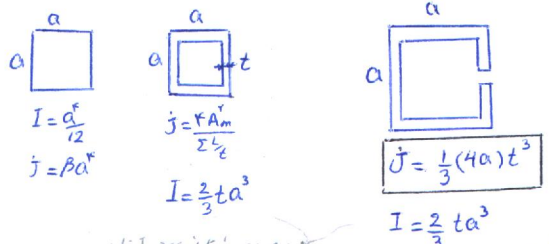 a
a
I = a⁴/12
J = βa⁴
a
a
t
J = ۴A²m / Σ L/t
I = 2/3 ta³
a
a
J = 1/3 (4a) t³
I = 2/3 ta³